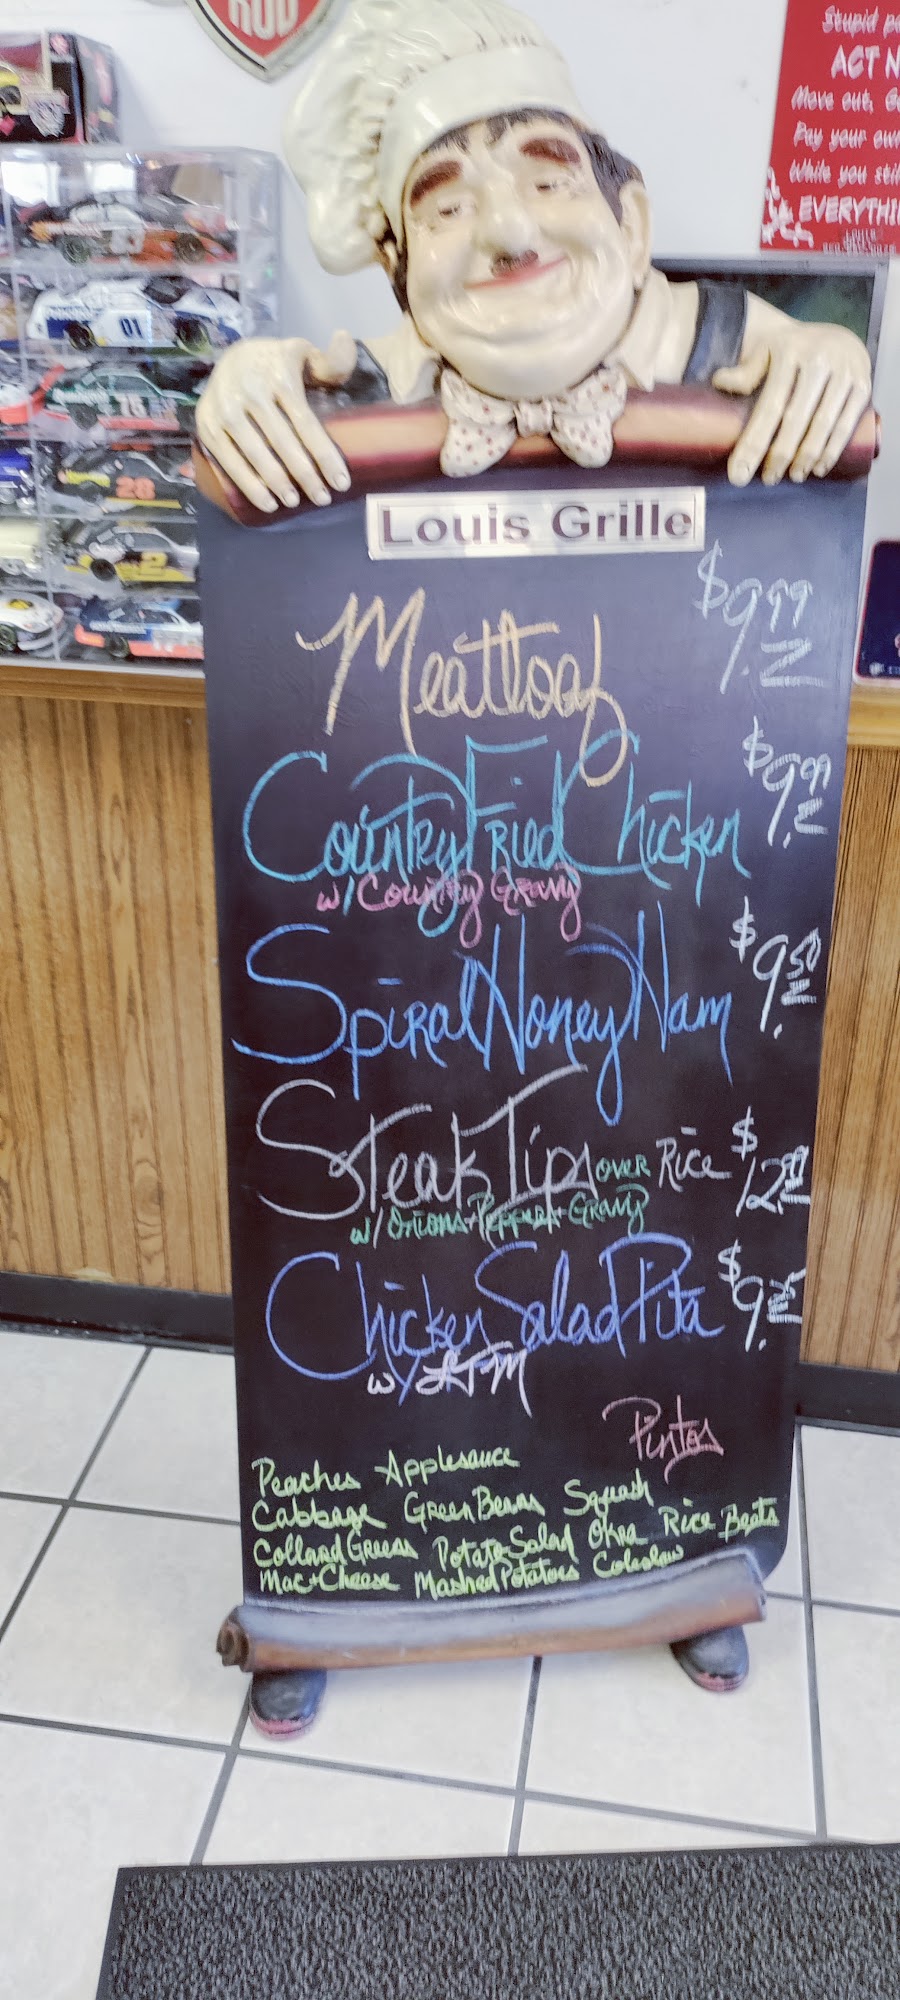 ROD
Stupid
ACT N
Move out, G
Pay your own
While you sti
EVERYTHI
01
28
2
Louis Grille
Meatloaf $9.99
Country Fried Chicken $9.99
w/ Country Gravy
Spiral Honey Ham $9.50
Steak Tips over Rice $12.99
w/ Onions + Peppers + Gravy
Chicken Salad Pita $9.25
w/ LTM
Pintos
Peaches Applesauce
Cabbage Green Beans Squash
Collard Greens Potato Salad Okra Rice Beets
Mac + Cheese Mashed Potatoes Coleslaw